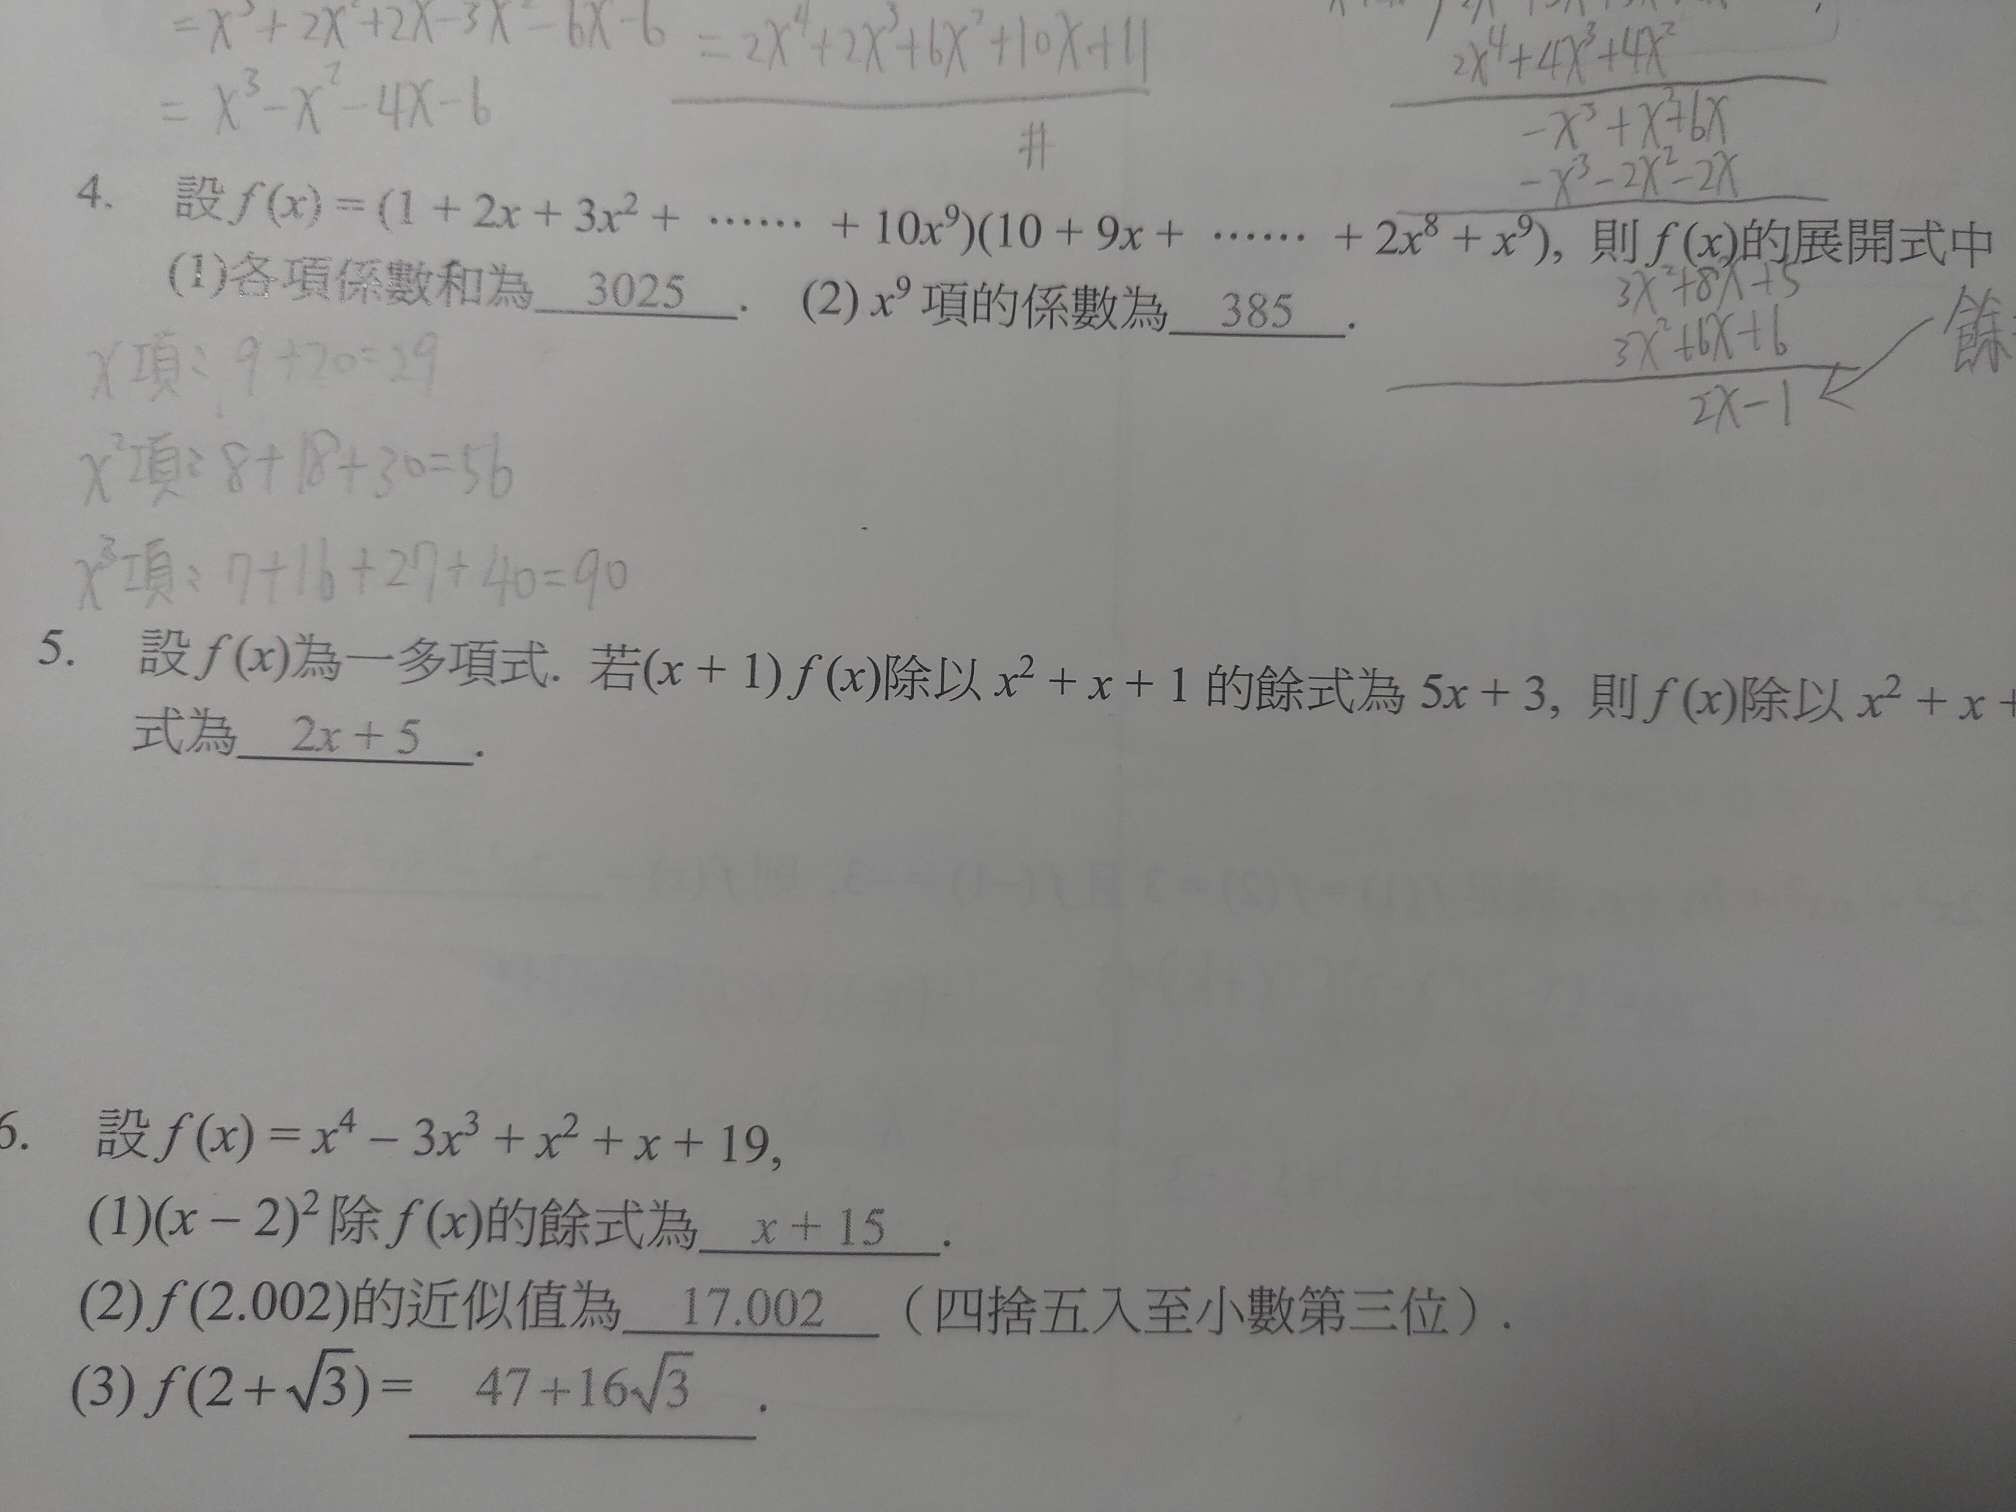 = x³ + 2x² + 2x - 3x² - 6x - 6
= x³ - x² - 4x - 6
= 2x⁴ + 2x³ + 6x² + 10x + 11
#
2x⁴ + 4x³ + 4x²
-x³ + x² + 6x
-x³ - 2x² - 2x
4. 設 f(x) = (1 + 2x + 3x² + …… + 10x⁹)(10 + 9x + …… + 2x⁸ + x⁹), 則 f(x)的展開式中
(1)各項係數和為 3025 . (2) x⁹ 項的係數為 385 .
3x² + 8x + 5
3x² + 6x + 6
餘
2x - 1
x項: 9 + 20 = 29
x²項: 8 + 18 + 30 = 56
x³項: 7 + 16 + 27 + 40 = 90
5. 設 f(x)為一多項式. 若(x + 1) f(x)除以 x² + x + 1 的餘式為 5x + 3, 則 f(x)除以 x² + x +
式為 2x + 5 .
6. 設 f(x) = x⁴ – 3x³ + x² + x + 19,
(1)(x – 2)² 除 f(x)的餘式為 x + 15 .
(2) f(2.002)的近似值為 17.002 （四捨五入至小數第三位）.
(3) f(2 + √3) = 47 + 16√3 .